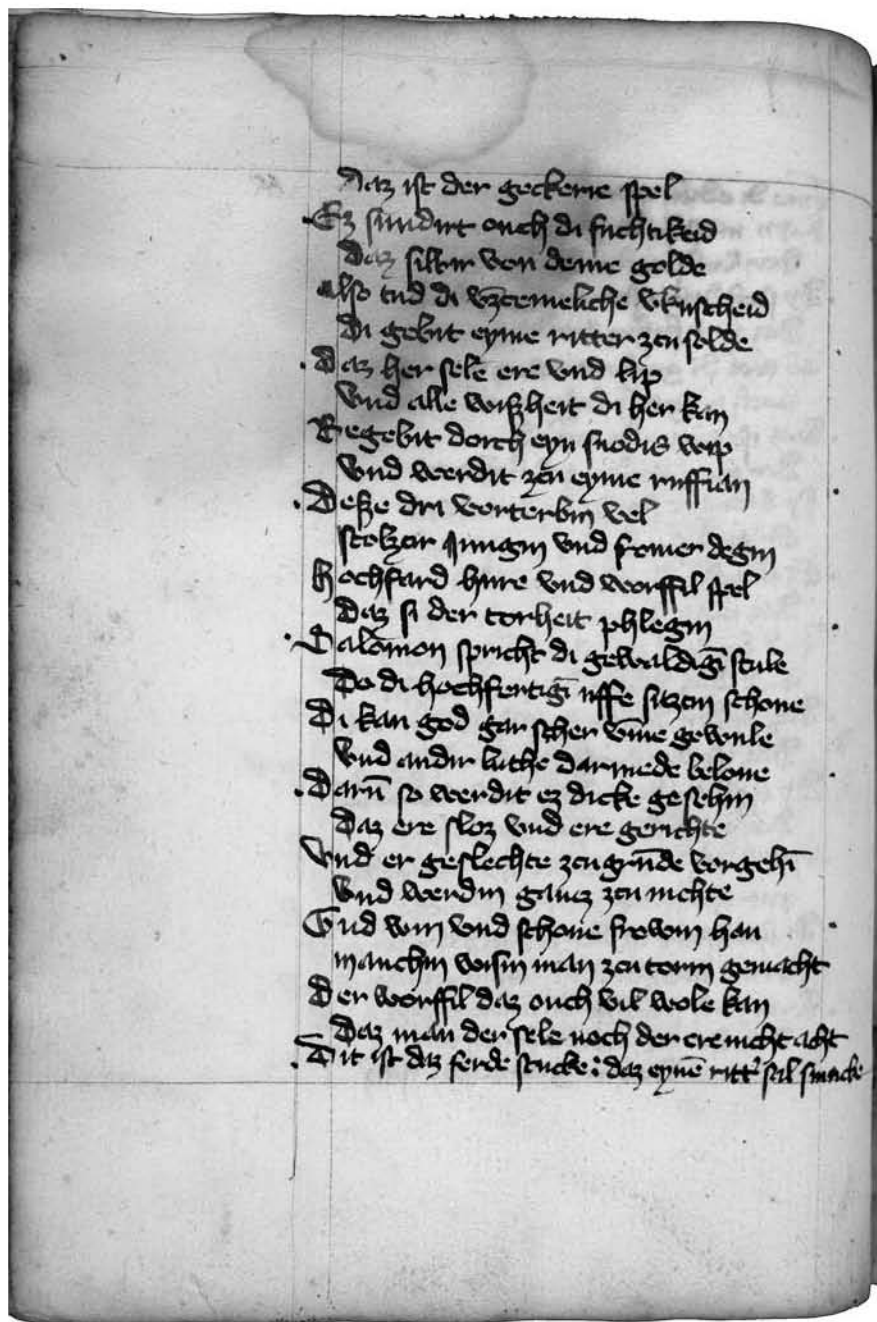 Daz ist der geckerie spel
Ez sundirt ouch di fuchtikeid
Daz silbir von deme golde
Also tud di vzcemeliche vkuscheid
Di gebit eyme ritter zcu solde
Daz her sele ere vnd lip
Vnd alle wißheit di her kan
Begebit dorch eyn snodis wip
Vnd werdit zcu eyme ruffian
Deße dri vorterbin vel
stolzcir Jungin vnd fromer degin
Hochfard hure vnd worffil spel
Daz si der torheit phlegin
Salomon spricht di gewaldigē stule
Do di hochfertigē uffe sitzcin schone
Di kan god gar scher vm̄e gewule
Vnd andir luthe darmede belone
Darū so werdit ez dicke gesehin
Daz ere sloz vnd ere gerichte
Vnd er geslechte zcu grūde vorgehī
Vnd werdin gancz zcu nichte
Vnd win vnd schone frowin han
manchin wisin man zcu torin gemacht
Der worffil daz ouch vil wole kan
Daz man der sele noch der ere nicht acht
Dit ist daz ferde stucke : daz eynē ritt' sal smucke